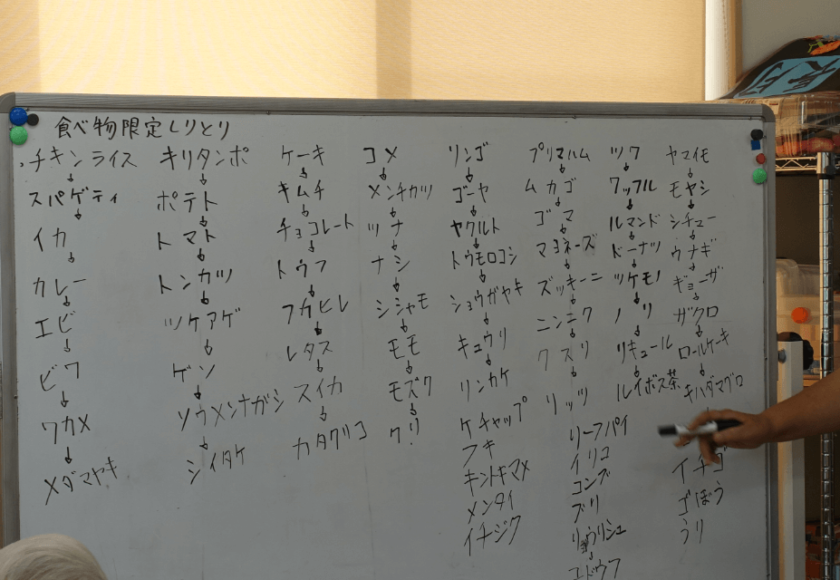 食べ物限定しりとり
チキンライス
スパゲティ
イカ
カレー
エビ
ビワ
ワカメ
メダマヤキ
キリタンポ
ポテト
トマト
トンカツ
ツケアゲ
ゲソ
ソウメンナガシ
シイタケ
ケーキ
キムチ
チョコレート
トウフ
フカヒレ
レタス
スイカ
カタクリコ
コメ
メンチカツ
ツナ
ナシ
シシャモ
モモ
モズク
クリ
リンゴ
ゴーヤ
ヤクルト
トウモロコシ
ショウガヤキ
キュウリ
リンカケ
ケチャップ
フキ
キントキマメ
メンタイ
イチジク
プリマハム
ムカゴ
ゴマ
マヨネーズ
ズッキーニ
ニンニク
クスリ
リッツ
リーフパイ
イリコ
コンブ
ブリ
ツワ
ワッフル
ルマンド
ドーナツ
ツケモノ
ノリ
リキュール
ルイボス茶
ヤマイモ
モヤシ
シチュー
ウナギ
ギョーザ
ザクロ
ロールケーキ
キハダマグロ
イチゴ
ゴぼう
うリ